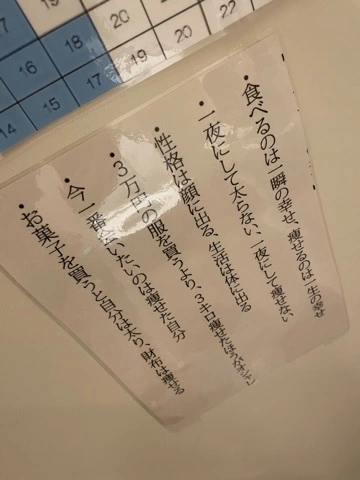 20
16 18
14 15 17 18 20 22
・食べるのは一瞬の幸せ、痩せるのは一生の幸せ
・一夜にして太らない、一夜にして痩せない
・性格は顔に出る、生活は体に出る
・3万円の服を買うより、3キロ痩せたほうがオシャレ
・今一番会いたいのは痩せた自分
・お菓子を買うと自分は太り、財布は痩せる